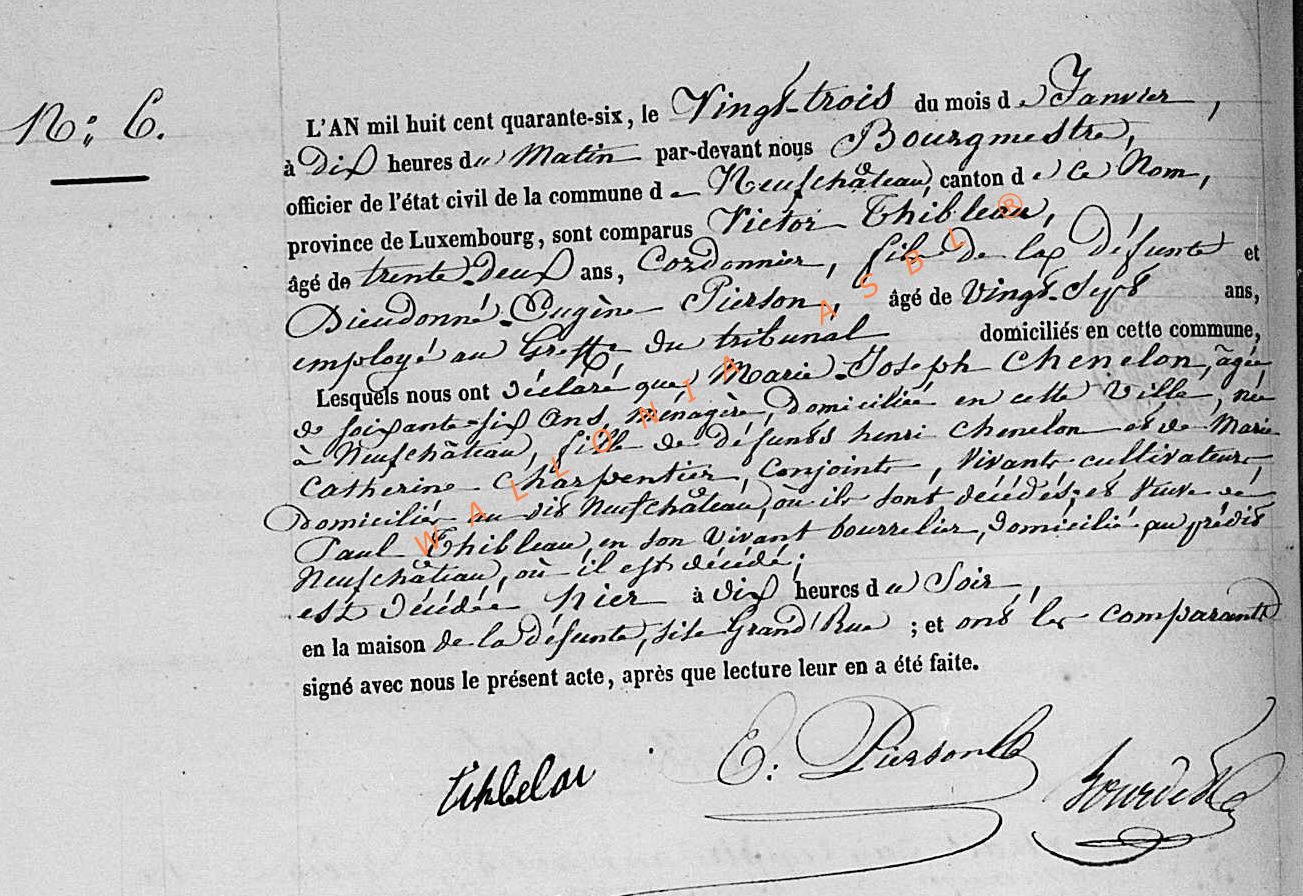 N.° 6.
L'AN mil huit cent quarante-six, le Vingt-trois du mois de Janvier,
à Dix heures du Matin par-devant nous Bourgmestre,
officier de l'état civil de la commune de Neufchâteau, canton de ce Nom,
province de Luxembourg, sont comparus Victor Thibleau,
âgé de trente-deux ans, Cordonnier, fils de la défunte et
Dieudonné-Eugène Pierson, âgé de Vingt-Sept ans,
employé au Greffe du tribunal domiciliés en cette commune,
Lesquels nous ont déclaré que Marie-Joseph Chenelon, âgée
de soixante-six Ans, ménagère, domiciliée en cette Ville, née
à Neufchâteau, fille de défunts henri Chenelon et de Marie
Catherine Charpentier, Conjoints, Vivants cultivateurs,
Domiciliés au dit Neufchâteau, où ils sont décédés; et Veuve de
Paul Thibleau, en son Vivant bourrelier, domicilié au prédit
Neufchâteau, où il est décédé;
est décédée hier à dix heures du Soir,
en la maison de la défunte, site Grand'Rue ; et ont les comparants
signé avec nous le présent acte, après que lecture leur en a été faite.
E. Pierson
WALLONIA ASBL ®